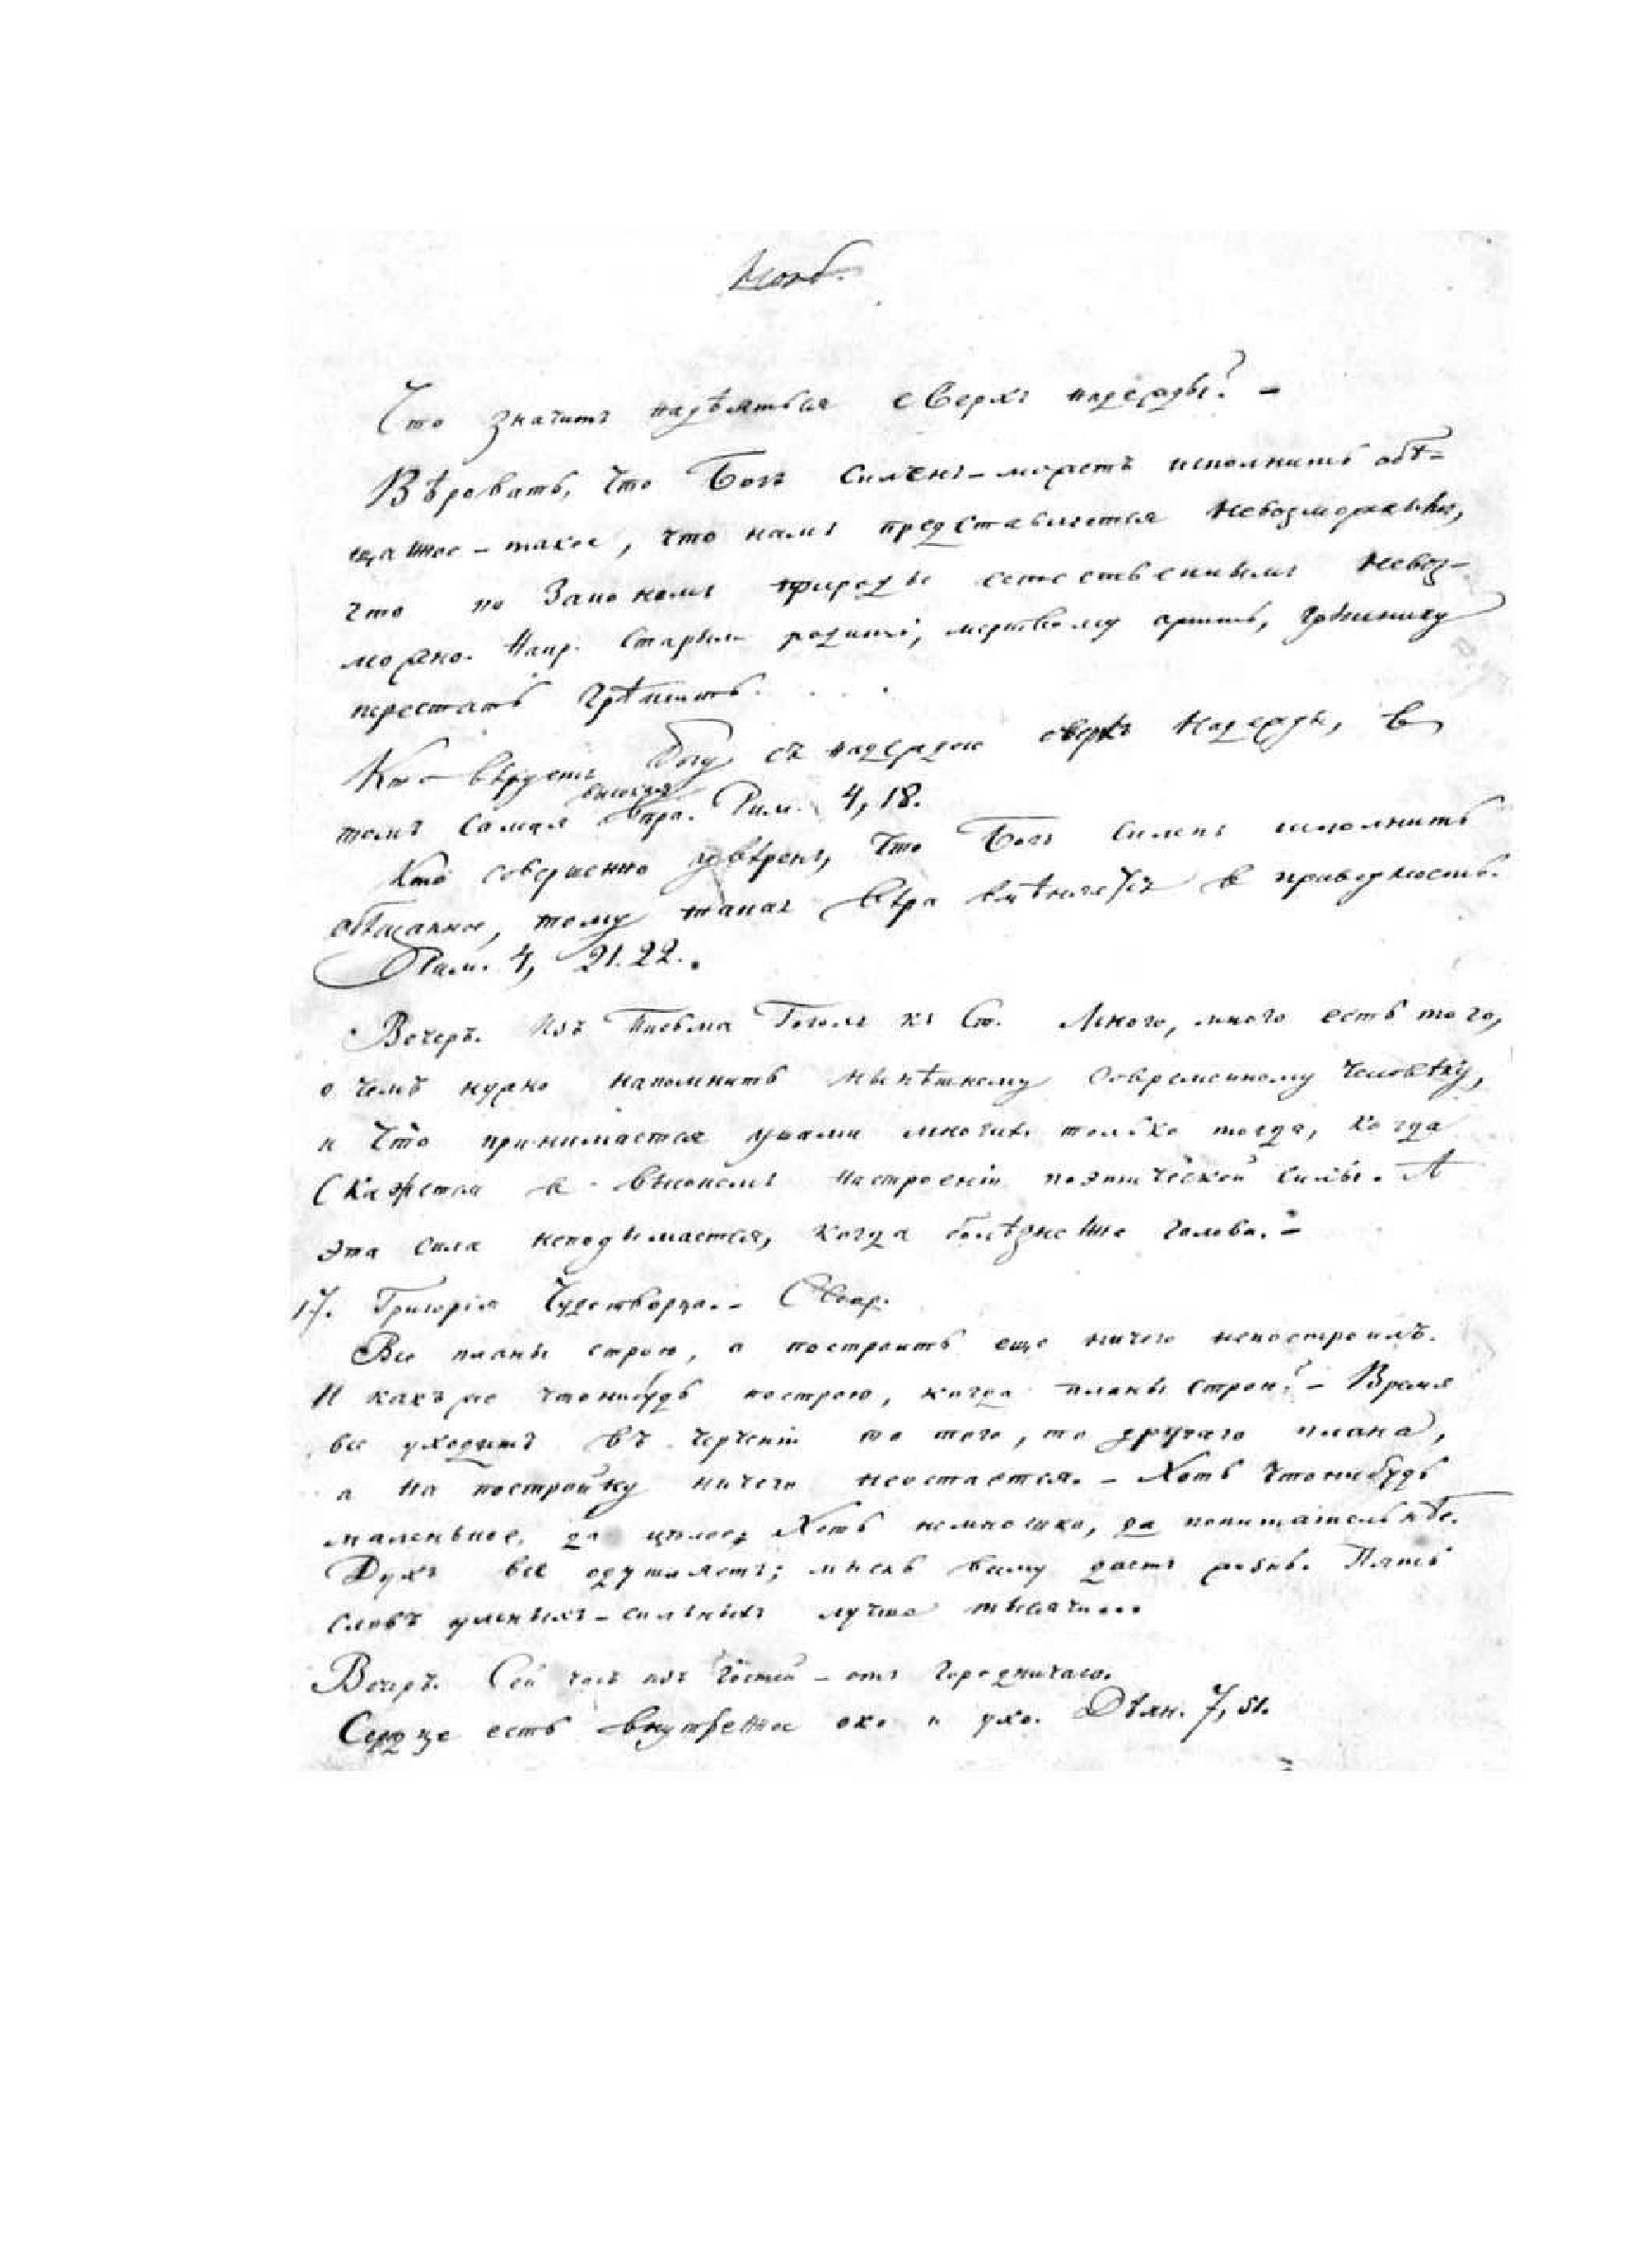 Нояб.
Что значитъ надѣяться сверхъ надежды? –
Вѣровать, что Богъ силенъ – можетъ исполнить обѣ-
щанное – такое, что намъ представляется невозможнымъ,
что по законамъ природы естественнымъ невоз-
можно. Напр. старымъ родить, мертвому ожить, грѣшнику
перестать грѣшить. . . .
Кто вѣруетъ Богу съ надеждою сверхъ надежды, в
томъ самая высшая вѣра. Рим. 4, 18.
Кто совершенно увѣренъ, что Богъ силенъ исполнить
обѣщанное, тому такая вѣра вмѣняется в праведность.
Рим. 4, 21. 22.
Вечеръ. Изъ Письма Гоголя къ Ст. Много, много есть того,
о чемъ нужно напомнить нынѣшнему современному человѣку,
и что принимается ушами многихъ только тогда, когда
скажется в высокомъ настроеніи поэтической силы. А
эта сила неподымается, когда болѣзненна голова. –
17. Григорія Чудотворца. –
Все планы строю, а построить еще ничего непостроилъ.
И какъ же чтонибудь построю, когда планы строю? – Время
все уходитъ въ черченіи то того, то другаго плана,
а на постройку ничего неостается. – Хоть чтонибудь
маленькое, да цѣлое, Хоть немножко, да попитательнѣе.
Духъ все одушляетъ; мысль всему даетъ жизнь. Пять
словъ умныхъ – сильныхъ лучше тысячи...
Вечеръ. Сей часъ изъ Гостей – отъ Городничаго.
Сердце есть внутреннее око и ухо. Дѣян. 7, 51.